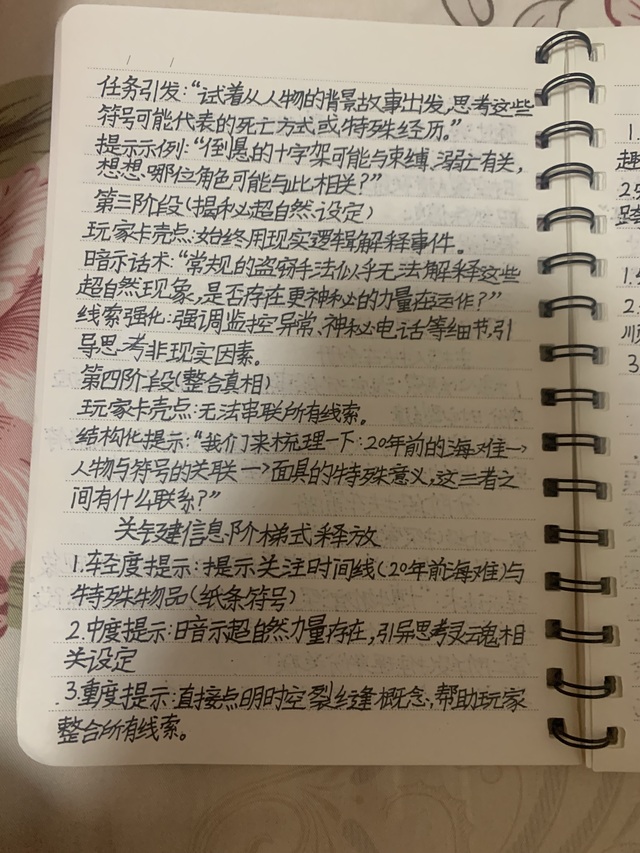 任务引发:“试着从人物的背景故事出发,思考这些
符号可能代表的死亡方式或特殊经历。”
提示示例:“倒悬的十字架可能与束缚、溺亡有关,
想想哪位角色可能与此相关?”
第三阶段(揭秘超自然设定)
玩家卡壳点:始终用现实逻辑解释事件。
暗示话术:“常规的盗窃手法似乎无法解释这些
超自然现象,是否存在更神秘的力量在运作?”
线索强化:强调监控异常、神秘电话等细节,引
导思考非现实因素。
第四阶段(整合真相)
玩家卡壳点:无法串联所有线索。
结构化提示:“我们来梳理一下:20年前的海难→
人物与符号的关联→面具的特殊意义,这三者之
间有什么联系?”
关键信息阶梯式释放
1.轻度提示:提示关注时间线(20年前海难)与
特殊物品(纸条符号)
2.中度提示:暗示超自然力量存在,引导思考灵魂相
关设定
3.重度提示:直接点明时空裂缝概念,帮助玩家
整合所有线索。
1.
趣
2.
1.
2.
3